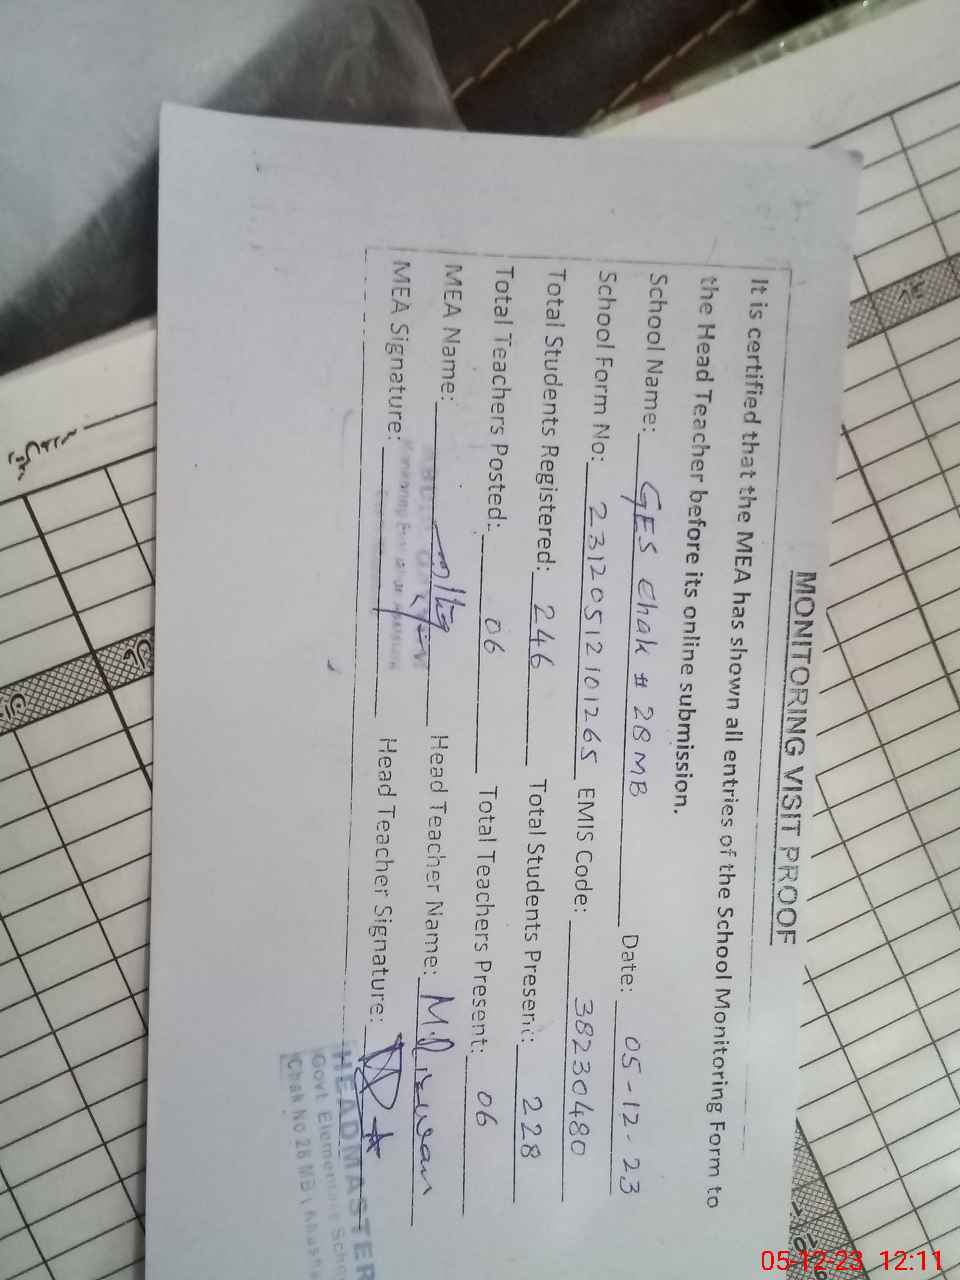 MONITORING VISIT PROOF
It is certified that the MEA has shown all entries of the School Monitoring Form to
the Head Teacher before its online submission.
School Name: GES Chak # 28 MB Date: 05-12-23
School Form No: 23120512101265 EMIS Code: 38230480
Total Students Registered: 246 Total Students Present: 228
Total Teachers Posted: 06 Total Teachers Present: 06
MEA Name: Head Teacher Name: M.Rizwan
MEA Signature: Head Teacher Signature:
HEADMASTER
Govt Elementary School
Chak No 28 MB
05-12-23 12:11